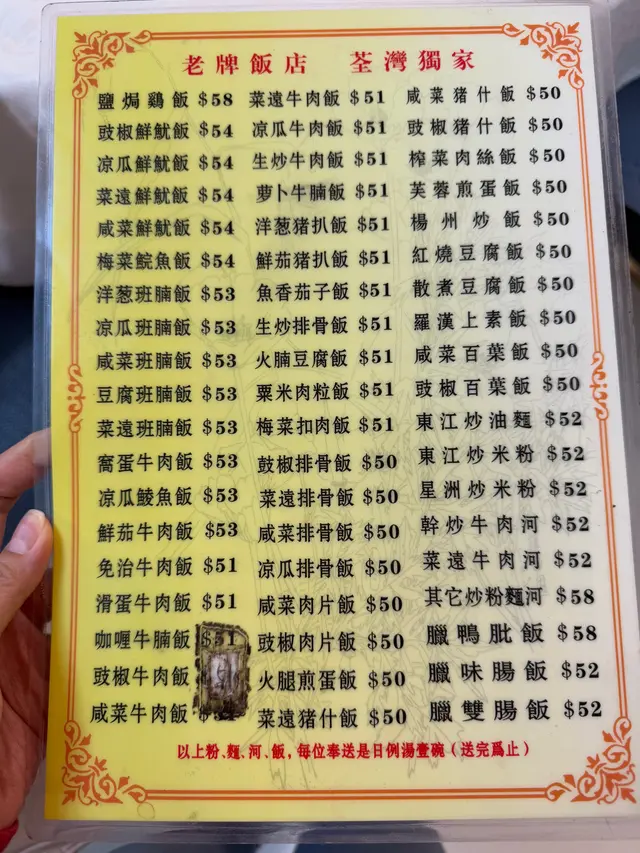 老牌飯店 荃灣獨家
鹽焗鷄飯 $58
豉椒鮮魷飯 $54
凉瓜鮮魷飯 $54
菜遠鮮魷飯 $54
咸菜鮮魷飯 $54
梅菜鯇魚飯 $54
洋葱班腩飯 $53
凉瓜班腩飯 $53
咸菜班腩飯 $53
豆腐班腩飯 $53
菜遠班腩飯 $53
窩蛋牛肉飯 $53
凉瓜鯪魚飯 $53
鮮茄牛肉飯 $53
免治牛肉飯 $51
滑蛋牛肉飯 $51
咖喱牛腩飯 $51
豉椒牛肉飯
咸菜牛肉飯
菜遠牛肉飯 $51
凉瓜牛肉飯 $51
生炒牛肉飯 $51
萝卜牛腩飯 $51
洋葱猪扒飯 $51
鮮茄猪扒飯 $51
魚香茄子飯 $51
生炒排骨飯 $51
火腩豆腐飯 $51
粟米肉粒飯 $51
梅菜扣肉飯 $51
豉椒排骨飯 $50
菜遠排骨飯 $50
咸菜排骨飯 $50
凉瓜排骨飯 $50
咸菜肉片飯 $50
豉椒肉片飯 $50
火腿煎蛋飯 $50
菜遠猪什飯 $50
咸菜猪什飯 $50
豉椒猪什飯 $50
榨菜肉絲飯 $50
芙蓉煎蛋飯 $50
楊州炒飯 $50
紅燒豆腐飯 $50
散煮豆腐飯 $50
羅漢上素飯 $50
咸菜百葉飯 $50
豉椒百葉飯 $50
東江炒油麵 $52
東江炒米粉 $52
星洲炒米粉 $52
幹炒牛肉河 $52
菜遠牛肉河 $52
其它炒粉麵河 $58
臘鴨肶飯 $58
臘味腸飯 $52
臘雙腸飯 $52
以上粉、麵、河、飯，每位奉送是日例湯壹碗（送完爲止）